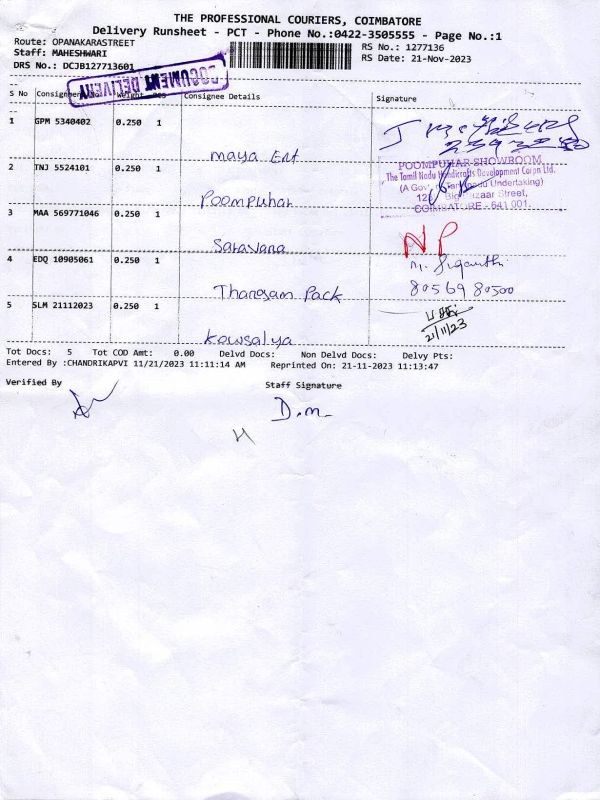 THE PROFESSIONAL COURIERS, COIMBATORE
Delivery Runsheet - PCT - Phone No.:0422-3505555 - Page No.:1
Route: OPANAKARASTREET
RS No.: 1277136
Staff: MAHESHWARI
RS Date: 21-Nov-2023
DRS No.: DCJB127713601
DOCUMENT DELIVERY
S No Consignment No. Weight PCS Consignee Details Signature
1 GPM 5340402 0.250 1
Maya Ent
2 TNJ 5524101 0.250 1
POOMPUHAR SHOWROOM
The Tamil Nadu Handicrafts Development Corpn Ltd.
(A Govt. Tamilnadu Undertaking)
Big Bazaar Street,
COIMBATORE - 641 001.
Poompuhar
3 MAA 569771046 0.250 1
NP
Saravana
4 EDQ 10905061 0.250 1
80569 80500
Thangam Pack
5 SLM 21112023 0.250 1
21/11/23
Kowsalya
Tot Docs: 5 Tot COD Amt: 0.00 Delvd Docs: Non Delvd Docs: Delvy Pts:
Entered By :CHANDRIKAPVI 11/21/2023 11:11:14 AM Reprinted On: 21-11-2023 11:13:47
Verified By Staff Signature
D.m